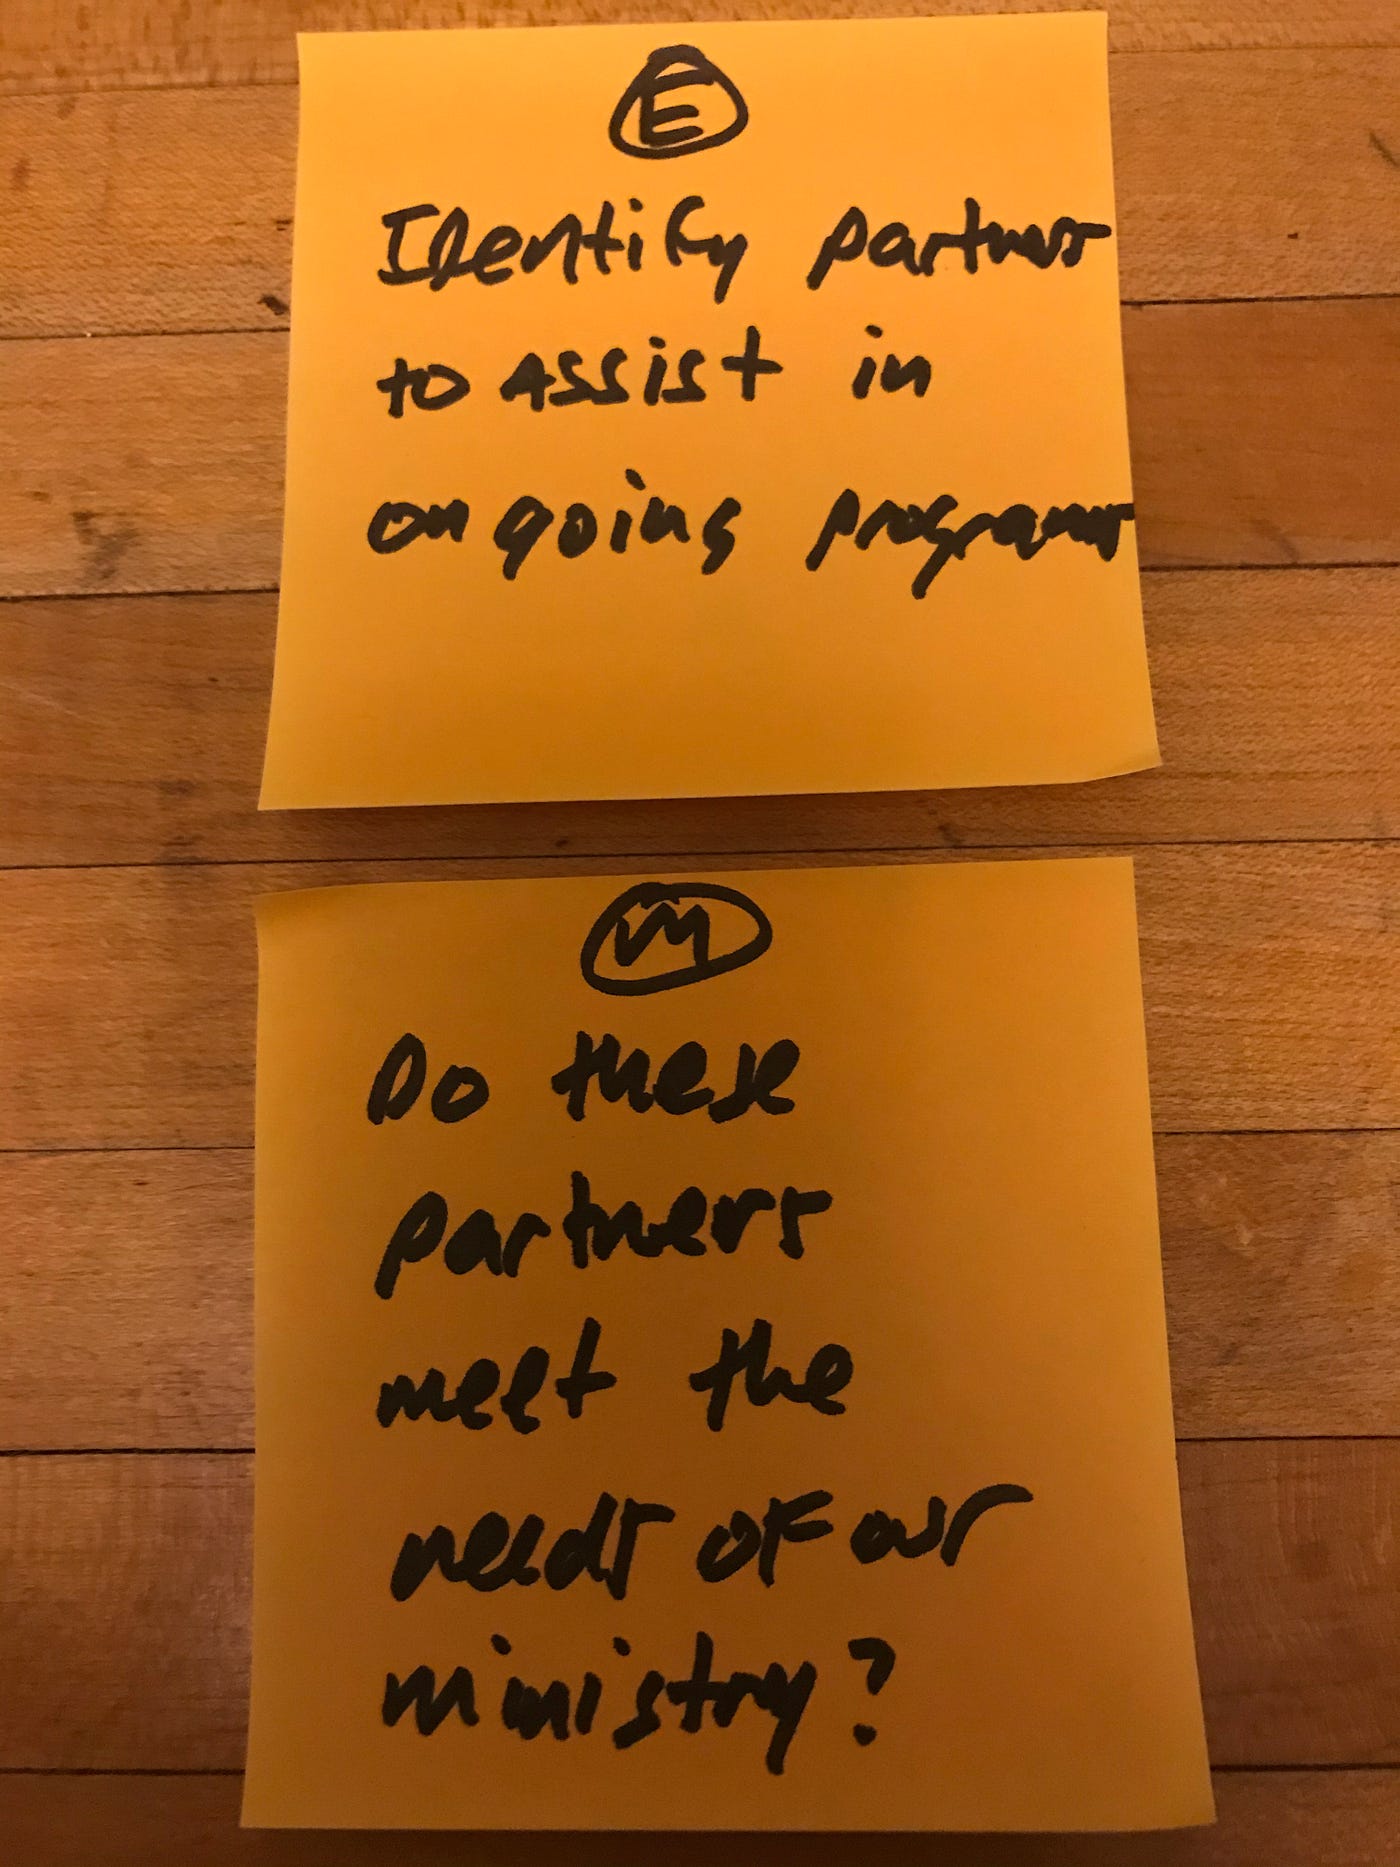 E
Identify partners
to Assist in
ongoing programs
M
Do these
partners
meet the
needs of our
ministry?